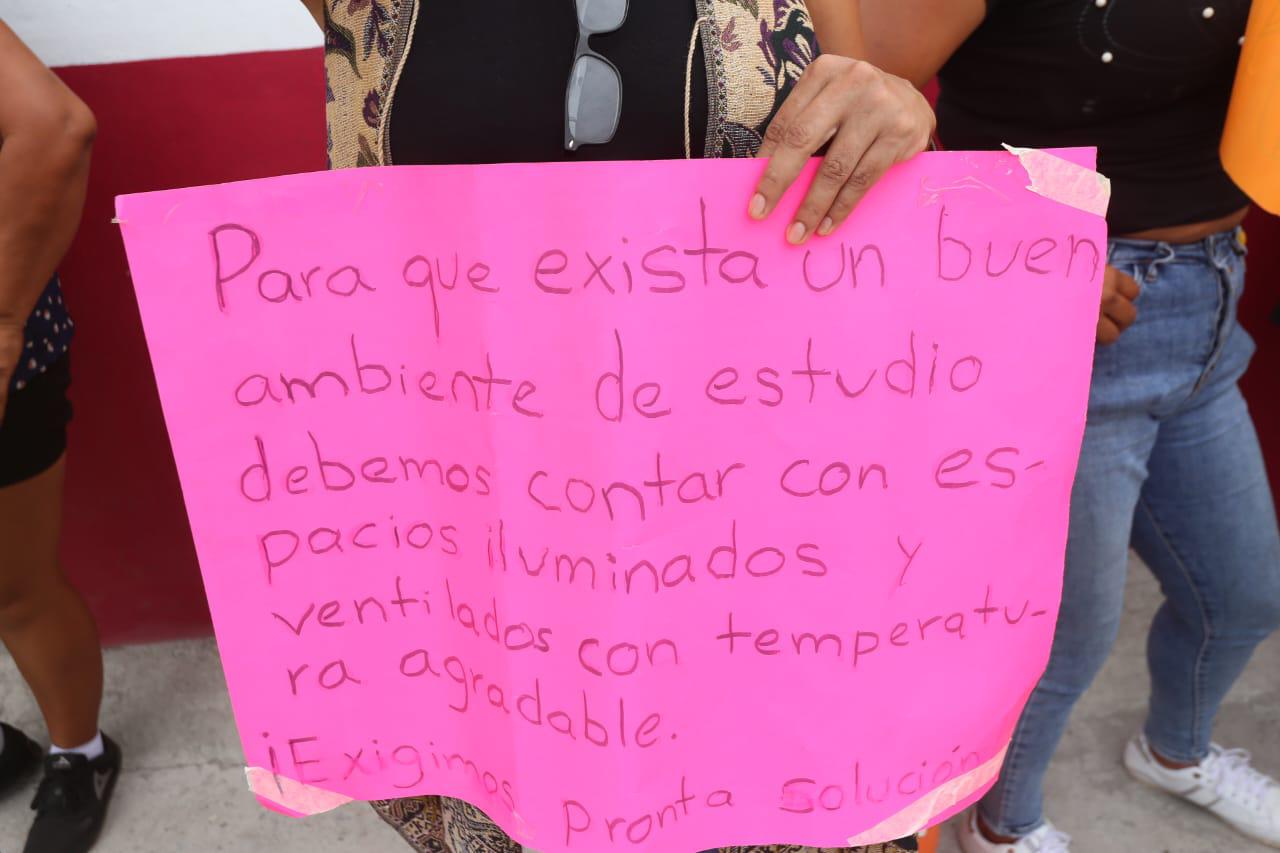 Para que exista un buen
ambiente de estudio
debemos contar con es-
pacios iluminados y
ventilados con temperatu-
ra agradable.
¡Exigimos Pronta Solución